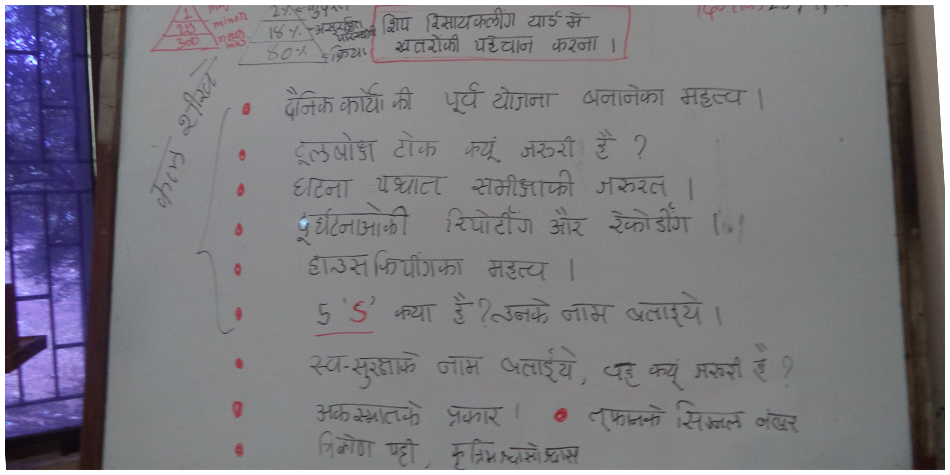 1
minor
2%
29
18%
शिप रिसायकलींग यार्ड में
300
80%
क्रिया
खतरोकी पहेचान करना ।
कल शीखे
• दैनिक कार्यो की पूर्व योजना बनानेका महत्व ।
• टूलबोक्ष टोक क्यूं जरुरी है ?
• घटना पश्चात समीक्षाकी जरुरत ।
• दूर्घटनाओकी रिपोर्टींग और रेकोर्डींग ।
• हाउसकिपींगका महत्व ।
• 5 'S' क्या है ? उनके नाम बताइये ।
• स्व-सुरक्षाके नाम बताईये, यह क्यूं जरुरी है ?
• अकस्मातके प्रकार । • तूफानके सिग्नल नंबर
• त्रिकोण पट्टी, कृत्रिम श्वासोश्वास